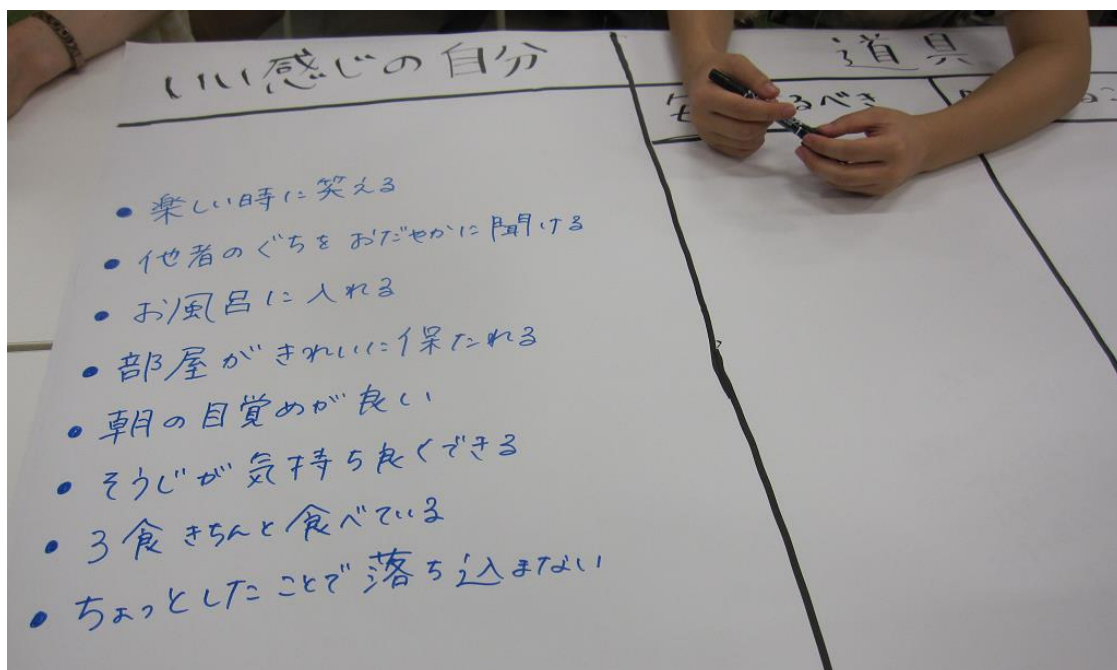 いい感じの自分
道具
るべき
• 楽しい時に笑える
• 他者のぐちをおだやかに聞ける
• お風呂に入れる
• 部屋がきれいに保たれる
• 朝の目覚めが良い
• そうじが気持ち良くできる
• 3食きちんと食べている
• ちょっとしたことで落ち込まない